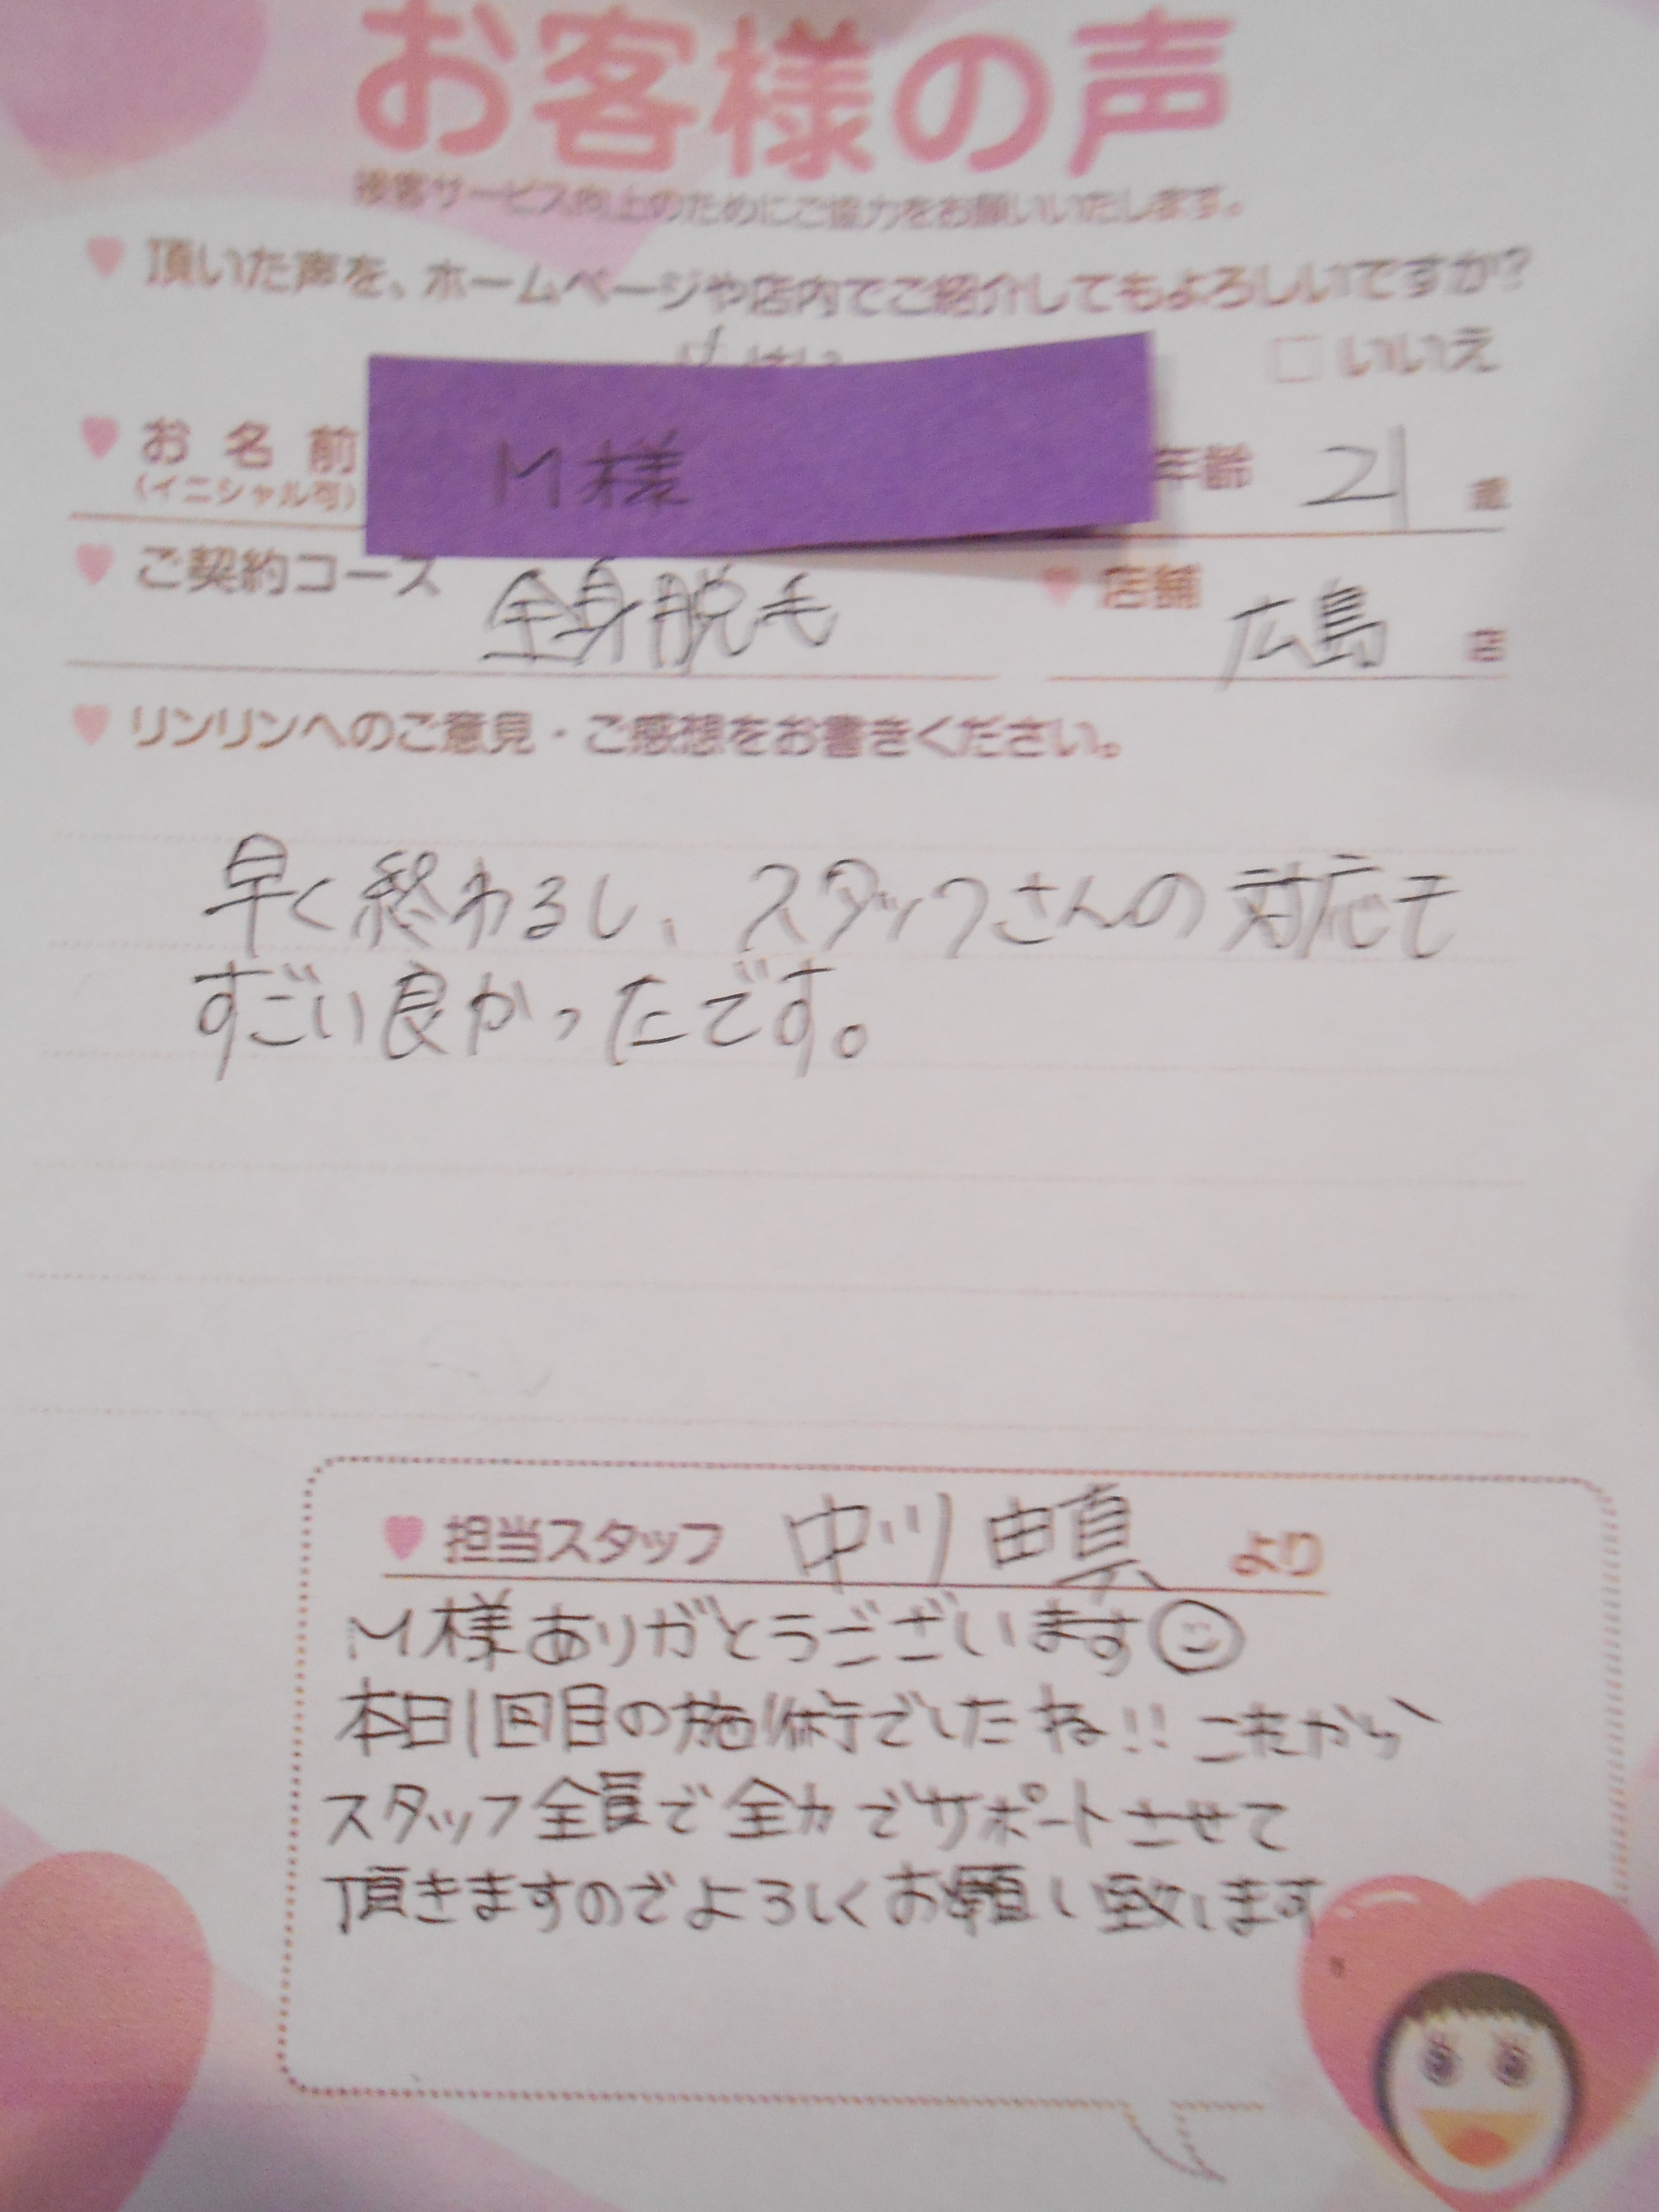 お客様の声
接客サービス向上のためにご協力をお願いいたします。
頂いた声を、ホームページや店内でご紹介してもよろしいですか?
はい □ いいえ
お名前 M様 年齢 21 歳
(イニシャル可)
ご契約コース 全身脱毛 店舗 広島 店
リンリンへのご意見・ご感想をお書きください。
早く終わるし、スタッフさんの対応も
すごい良かったです。
担当スタッフ 中川 由真 より
M様ありがとうございます
本日1回目の施術でしたね!! これから
スタッフ全員で全力でサポートさせて
頂きますのでよろしくお願い致します